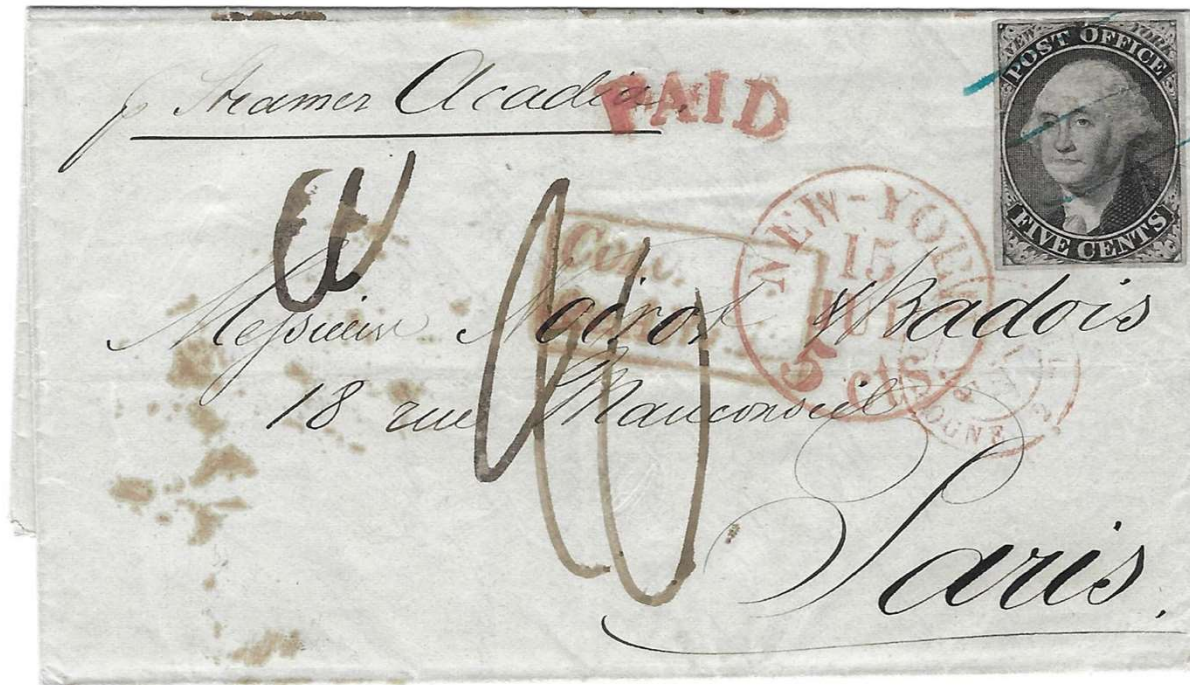 p Steamer Acadia.
PAID
NEW YORK
POST OFFICE
FIVE CENTS
NEW-YORK
15
5 cts
Colo.
Messieurs Noirot & Badois
18 rue Mauconseil
Paris.